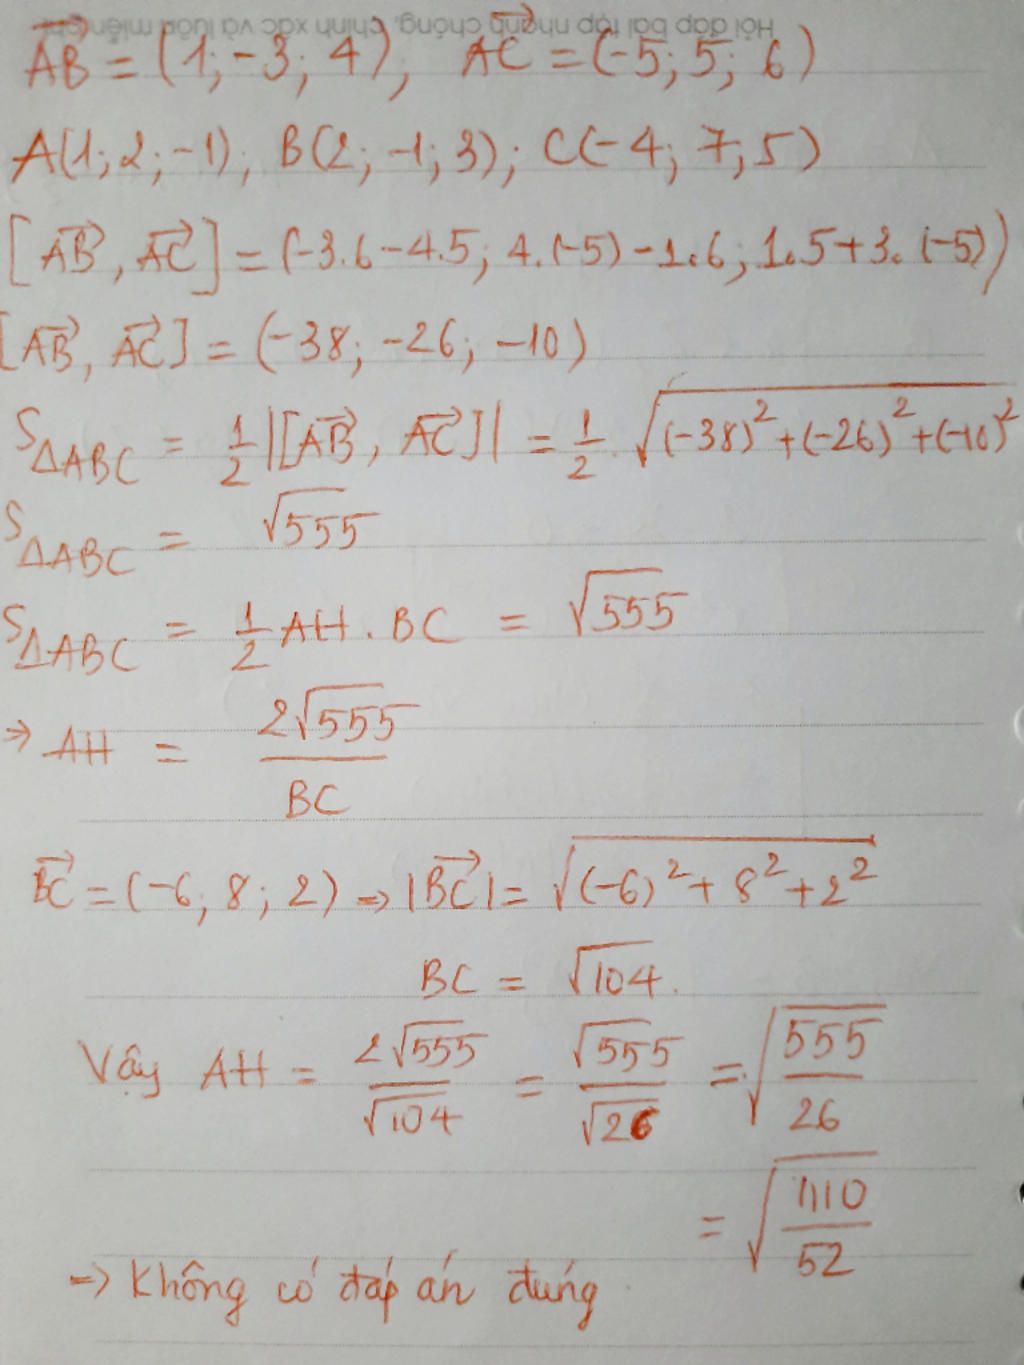 Hỏi đáp bài tập nhanh chóng, chính xác và luôn miễn phí
AB = (1; -3; 4), AC = (-5; 5; 6)
A(1; 2; -1); B(2; -1; 3); C(-4; 7; 5)
[AB, AC] = (-3.6 - 4.5; 4.(-5) - 1.6; 1.5 + 3.(-5))
[AB, AC] = (-38; -26; -10)
SΔABC = 1/2 |[AB, AC]| = 1/2 . √((-38)² + (-26)² + (-10)²)
SΔABC = √555
SΔABC = 1/2 AH . BC = √555
⇒ AH = 2√555 / BC
BC = (-6; 8; 2) ⇒ |BC| = √((-6)² + 8² + 2²)
BC = √104.
Vậy AH = 2√555 / √104 = √555 / √26 = √(555/26)
= √(1110/52)
⇒ Không có đáp án đúng.